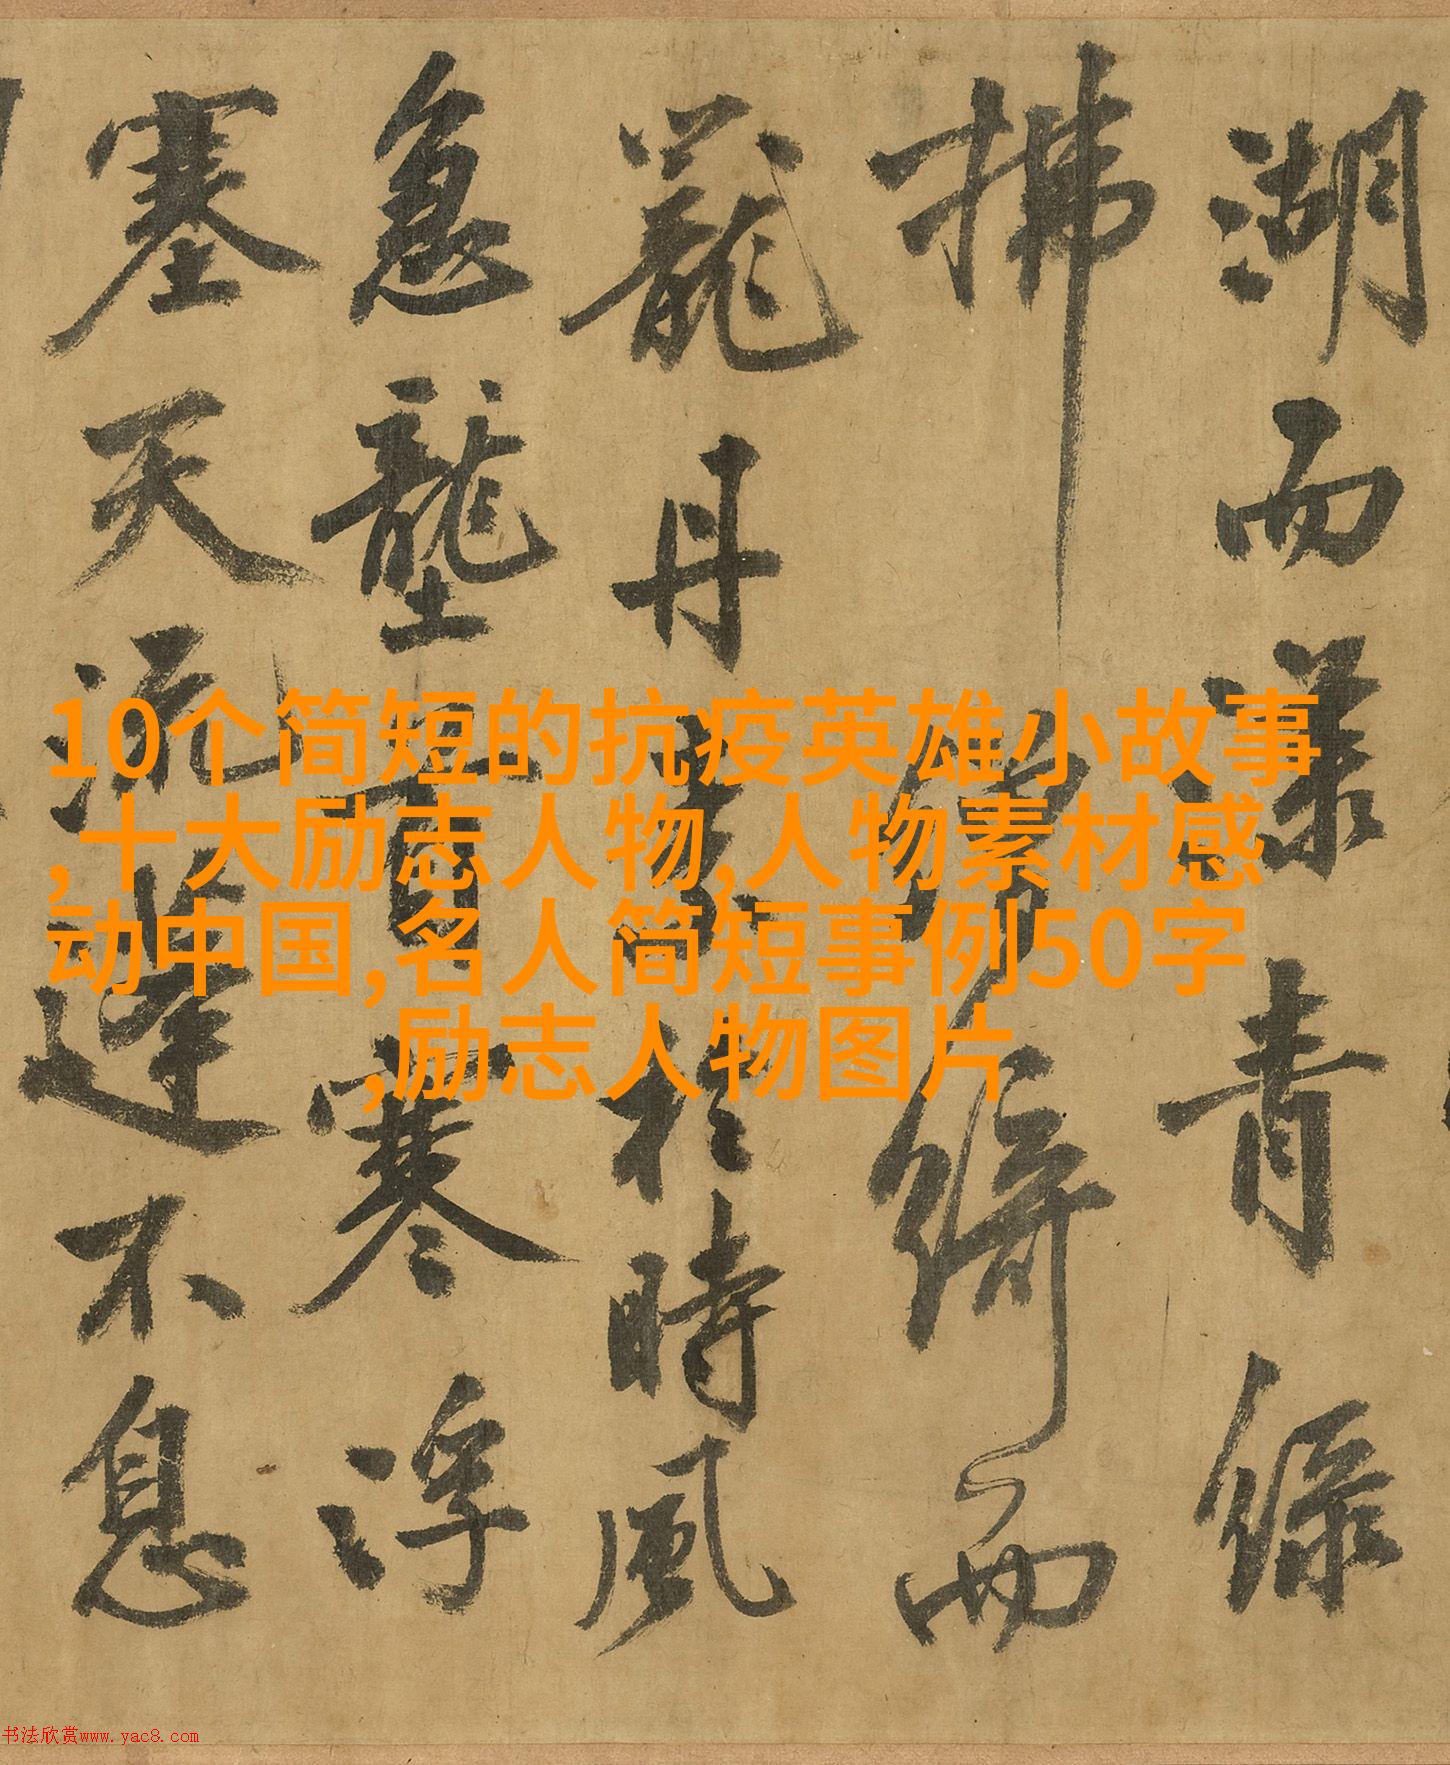 湖而漾青緑
拂綺而
籠丹於時風
急壟首寒浮
塞天流蓬不息
10个简短的抗疫英雄小故事
,十大励志人物,人物素材感
动中国,名人简短事例50字
,励志人物图片
书法欣赏www.yac8.com